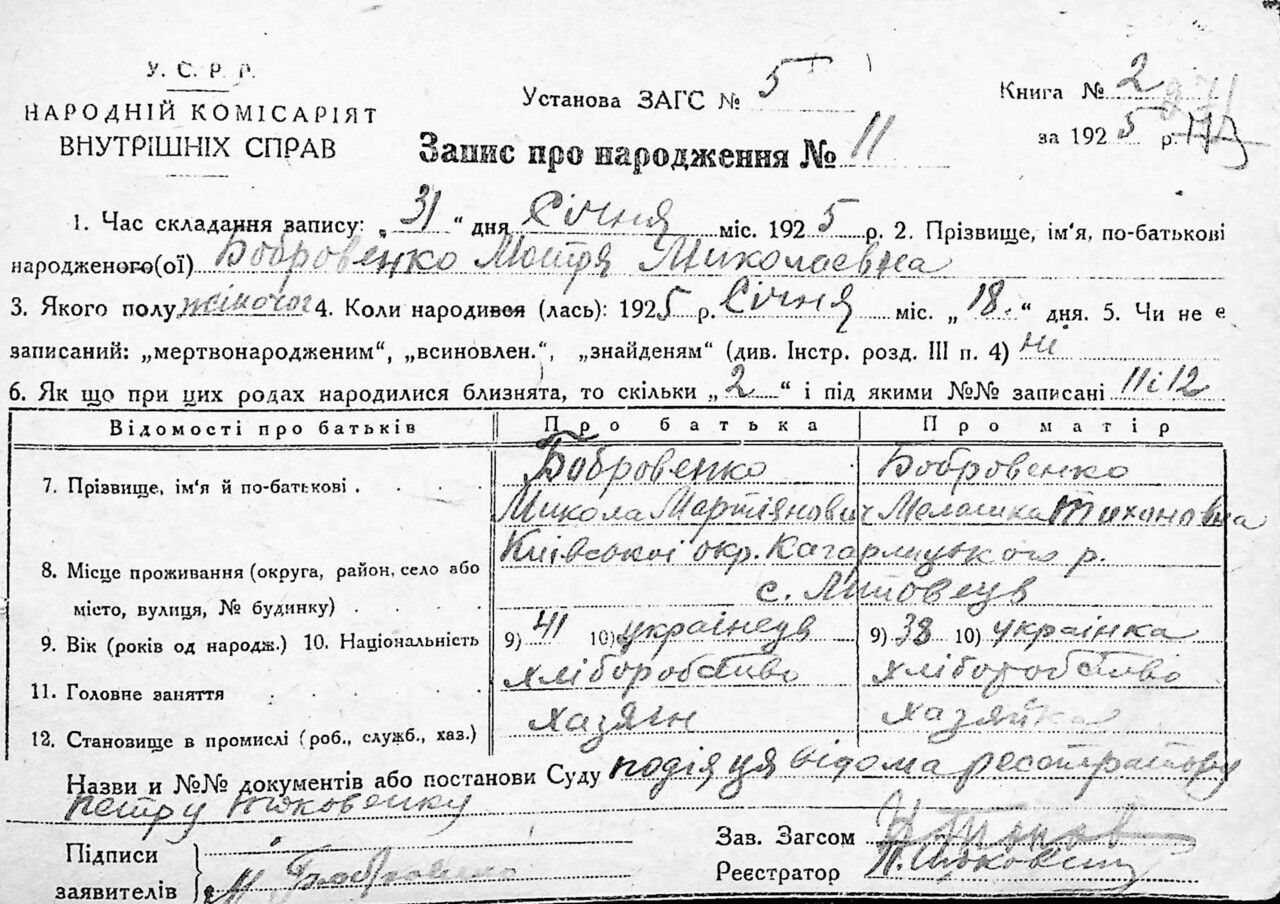 У. С. Р. Р.
НАРОДНІЙ КОМІСАРІЯТ
ВНУТРІШНІХ СПРАВ
Установа ЗАГС № 5
Книга № 2
за 1925 р.
Запис про народження № 11
1. Час складання запису: „31“ дня Січня міс. 1925 р. 2. Прізвище, ім'я, по-батькові
народженого(ої) Бобровенко Мотря Миколаєвна
3. Якого полу жіночог 4. Коли народився (лась): 1925 р. Січня міс. „18.“ дня. 5. Чи не є
записаний: „мертвонародженим“, „всиновлен.“, „знайденям“ (див. Інстр. розд. III п. 4) ні
6. Як що при цих родах народилися близнята, то скільки „2“ і під якими №№ записані 11 і 12
Відомості про батьків Про батька Про матір
7. Прізвище, ім'я й по-батькові . . . . Бобровенко Бобровенко
Микола Мартіянович Малашка Тихановна
8. Місце проживання (округа, район, село або Київської окр. Кагарлицького р.
місто, вулиця, № будинку) . . . . с. Липовець
9. Вік (років од народж.) 10. Національність 9) 41 10) українець 9) 38 10) українка
11. Головне заняття . . . . . хліборобство хліборобство
12. Становище в промислі (роб., служб., хаз.) хазяїн хазяйка
Назви и №№ документів або постанови Суду подія ця відома реєстратору
Петру
Підписи
заявителів М Бобровенко
Зав. Загсом
Реєстратор П.